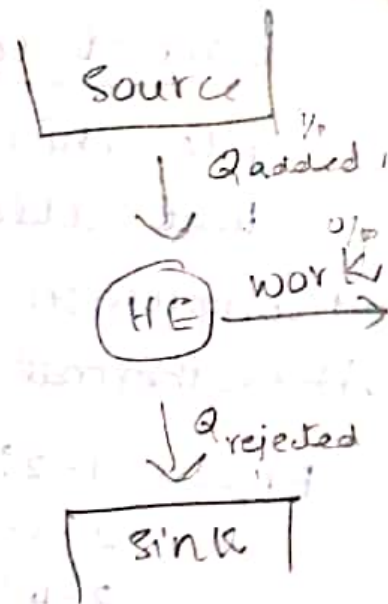 Source
i/p
Q added
o/p
work
HE
Q rejected
Sink